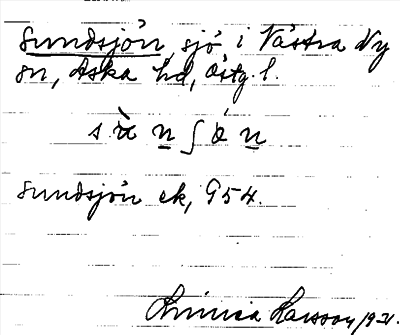 Sundsjön, sjö i Västra Ny
sn, Aska hd, Östg. l.
s ù n ʃ ó n
Sundsjön ek, 954.
Larsson 1921.